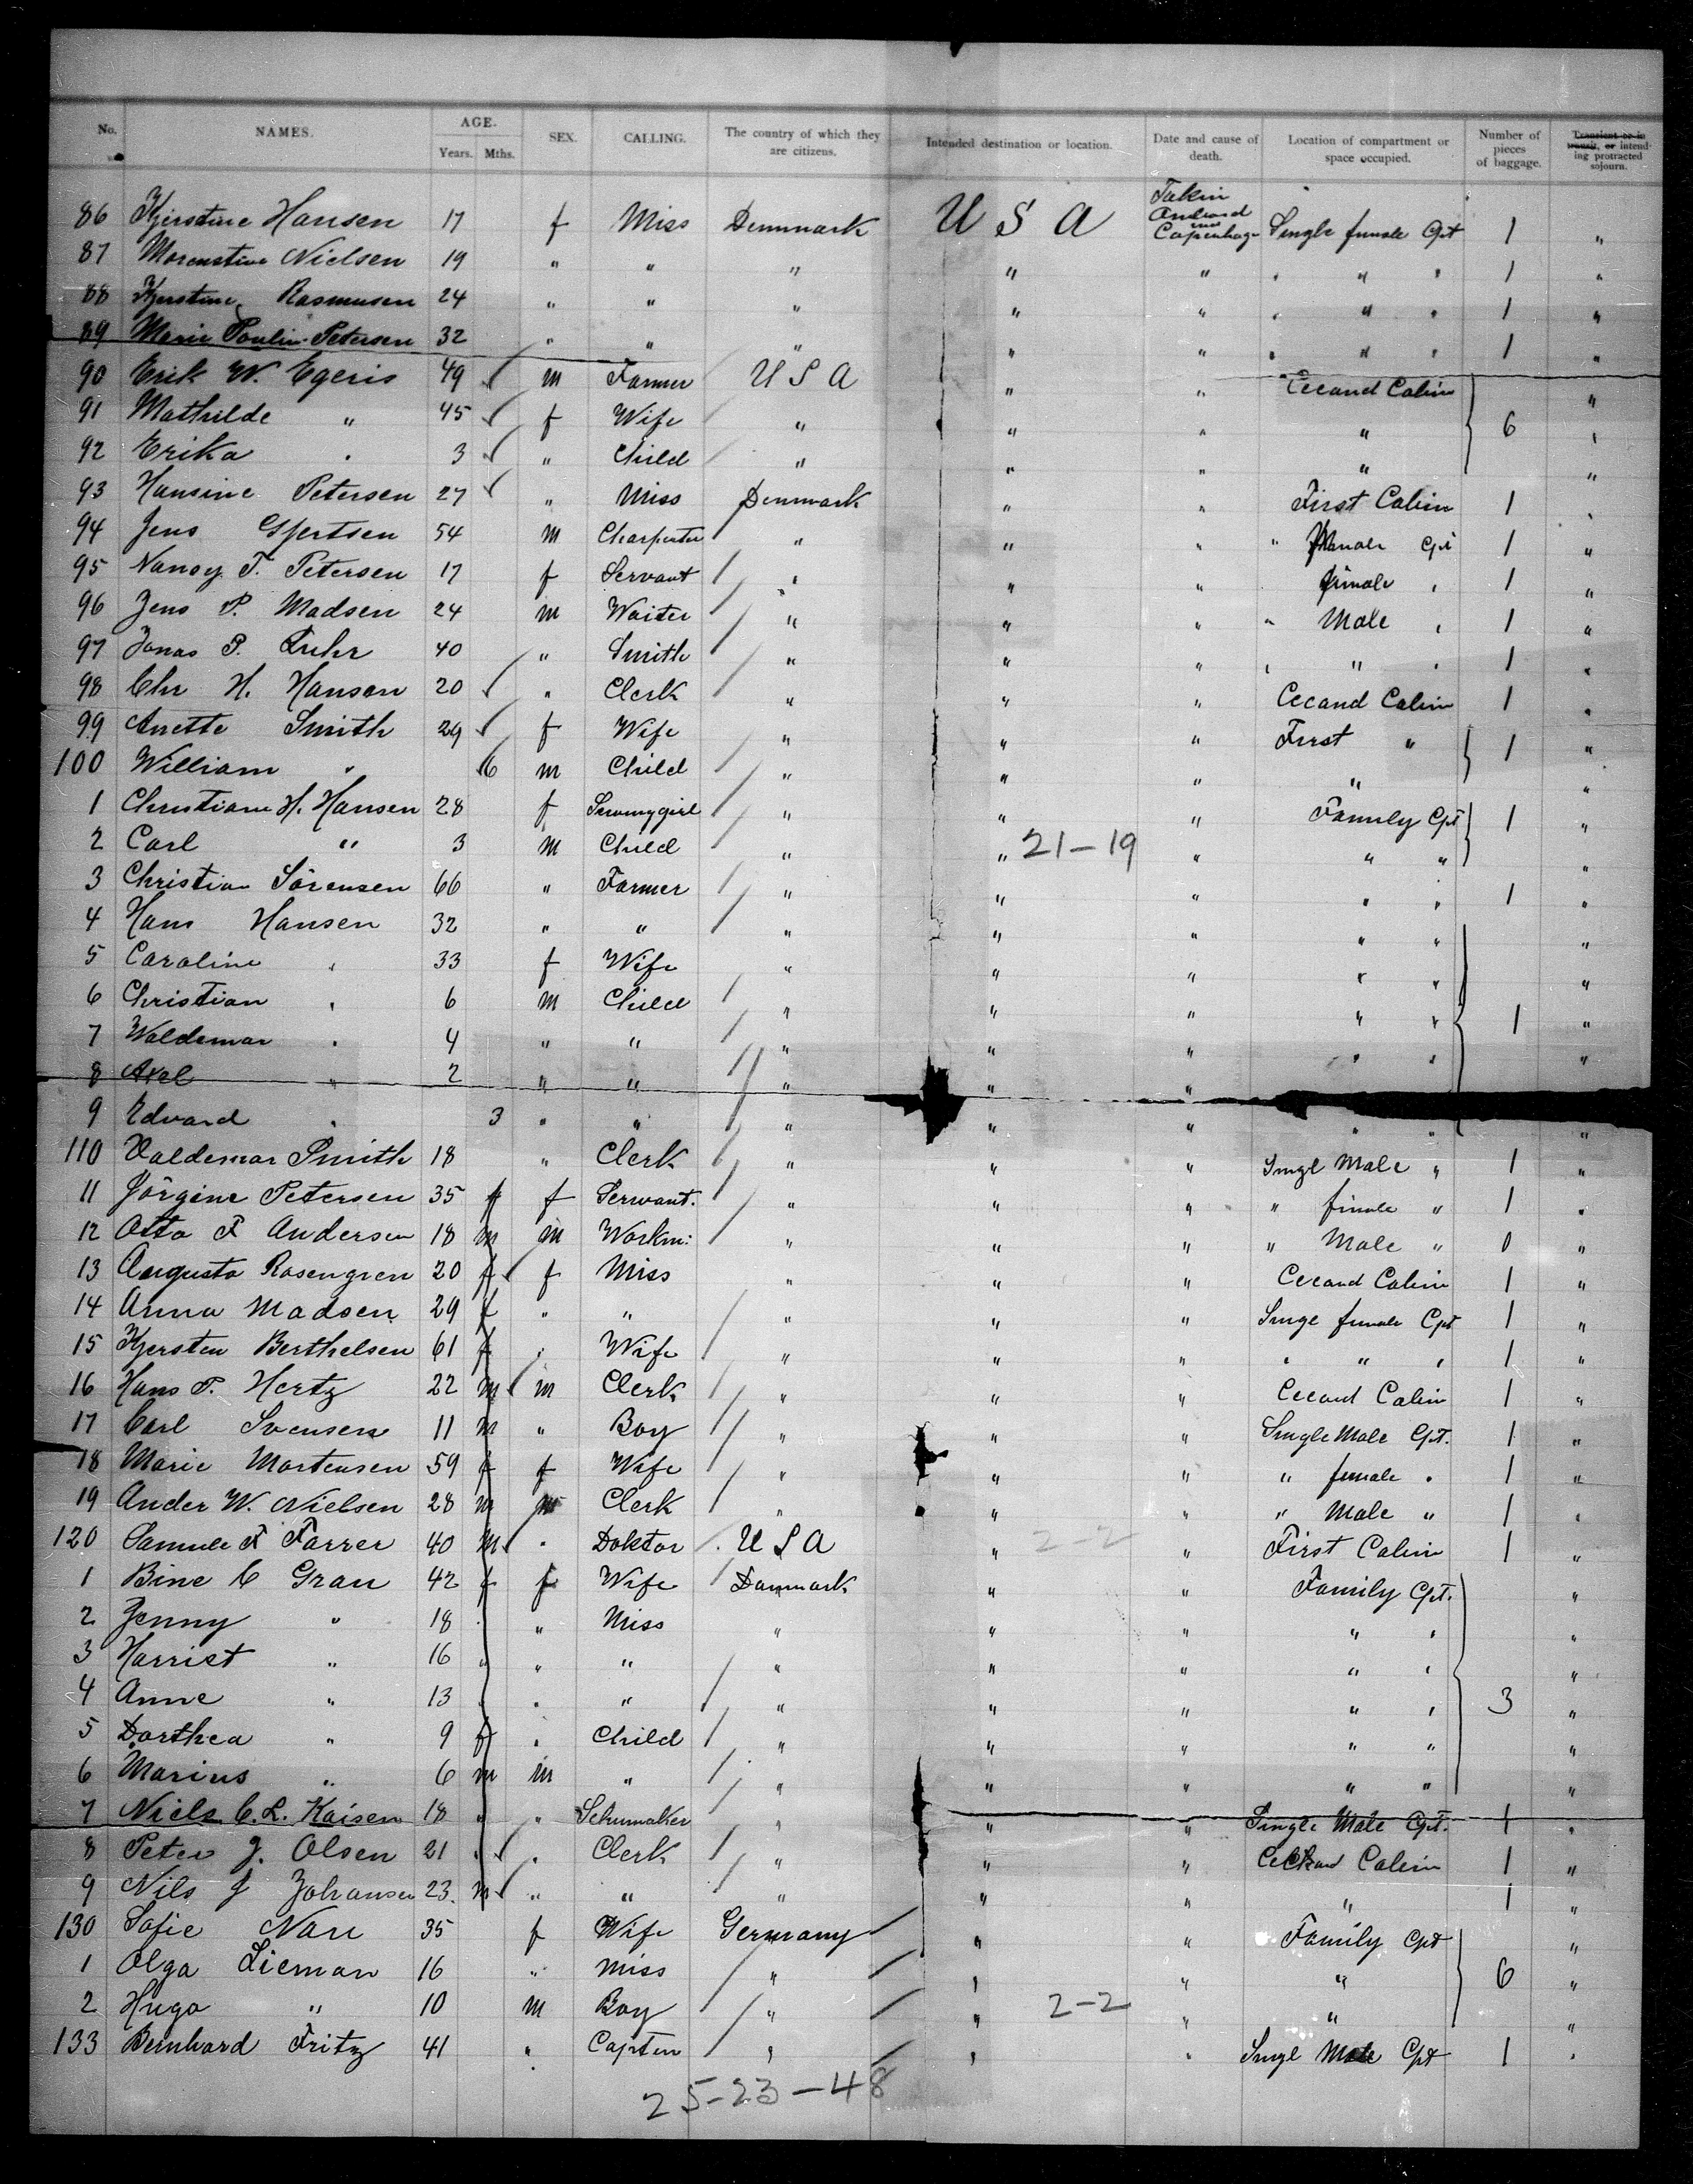 No. NAMES. AGE. Years. Mths. SEX. CALLING. The country of which they are citizens. Intended destination or location. Date and cause of death. Location of compartment or space occupied. Number of pieces of baggage. Transient or in transit, or intending protracted sojourn.
86 Kjerstine Hansen 17 f Miss Denmark U S A Takin Anbord Copenhage Single female Cpt 1 "
87 Nielsen 19 " " " " " " " " 1 "
88 Kjerstine Rasmusen 24 " " " " " " " " 1 "
89 Marie Poulin Petersen 32 " " " " " " " " 1 "
90 Erik W. Egeris 49 m Farmer U S A " " Cecand Cabin "
91 Mathilde " 45 f Wife " " " " 6 "
92 Erika " 3 " Child " " " " "
93 Hansine Petersen 27 " Miss Denmark " " First Cabin 1 "
94 Jens Gjertsen 54 m Charpenter " " " " male Cpt 1 "
95 Nancy T. Petersen 17 f Servant " " " female " 1 "
96 Jens P. Madsen 24 m Waiter " " " " Male " 1 "
97 Jonas P. Fuhr 40 " Smith " " " " " " 1 "
98 Chr H. Hansen 20 " Clerk " " " Cecand Cabin 1 "
99 Anette Smith 29 f Wife " " " First " 1 "
100 William " 6 m Child " " " " "
1 Christiane H. Hansen 28 f " " " Family Cpt 1 "
2 Carl " 3 m Child " " 21-19 " " " "
3 Christian Sörensen 66 " Farmer " " " " " 1 "
4 Hans Hansen 32 " " " " " " " "
5 Caroline " 33 f Wife " " " " " "
6 Christian " 6 m Child " " " " " 1 "
7 Waldemar " 4 " " " " " " " "
8 Axel " 2 " " " " "
9 Edvard " 3 " " " " " " " "
110 Valdemar Smith 18 " Clerk " " " Singl Male " 1 "
11 Jörgine Petersen 35 f f Servant. " " " " finale " 1 "
12 Otto F Andersen 18 m m Workm: " " " " Male " 0 "
13 Augusta Rosengren 20 f f Miss " " " Cecand Cabin 1 "
14 Anna Madsen 29 f " " " " " Singe female Cpt 1 "
15 Kjersten Berthelsen 61 f " Wife " " " " " " 1 "
16 Hans P. Hertz 22 m m Clerk " " " Cecand Cabin 1 "
17 Carl Svensen 11 m " Boy " " " Single Male Cpt. 1 "
18 Marie Mortensen 59 f f Wife " " " " female " 1 "
19 Ander W. Nielsen 28 m m Clerk " " " " Male " 1 "
120 Samule F Farrer 40 m " Doktor U S A " 2-2 " First Cabin 1 "
1 Bine C Grau 42 f f Wife Danmark " " Family Cpt. "
2 Jenny " 18 " " Miss " " " " " "
3 Harriet " 16 " " " " " " " " "
4 Anne " 13 " " " " " " " " 3 "
5 Dorthea " 9 f " Child " " " " " "
6 Marius " 6 m m " " " " " " "
7 Niels C.L. Kaisen 18 " " Schumaker " " " Single Male Cpt. 1 "
8 Peter J. Olsen 21 " " Clerk " " " Cabin 1 "
9 Nils J Johansen 23. m " " " " " " 1 "
130 Sofie 35 f Wife Germany " " Family Cpt "
1 Olga Lieman 16 " Miss " " " " 6 "
2 Hugo " 10 m Boy " " 2-2 " " "
133 Bernhard Fritz 41 " Capten " " " Singl Male Cpt 1 "
25-23-48